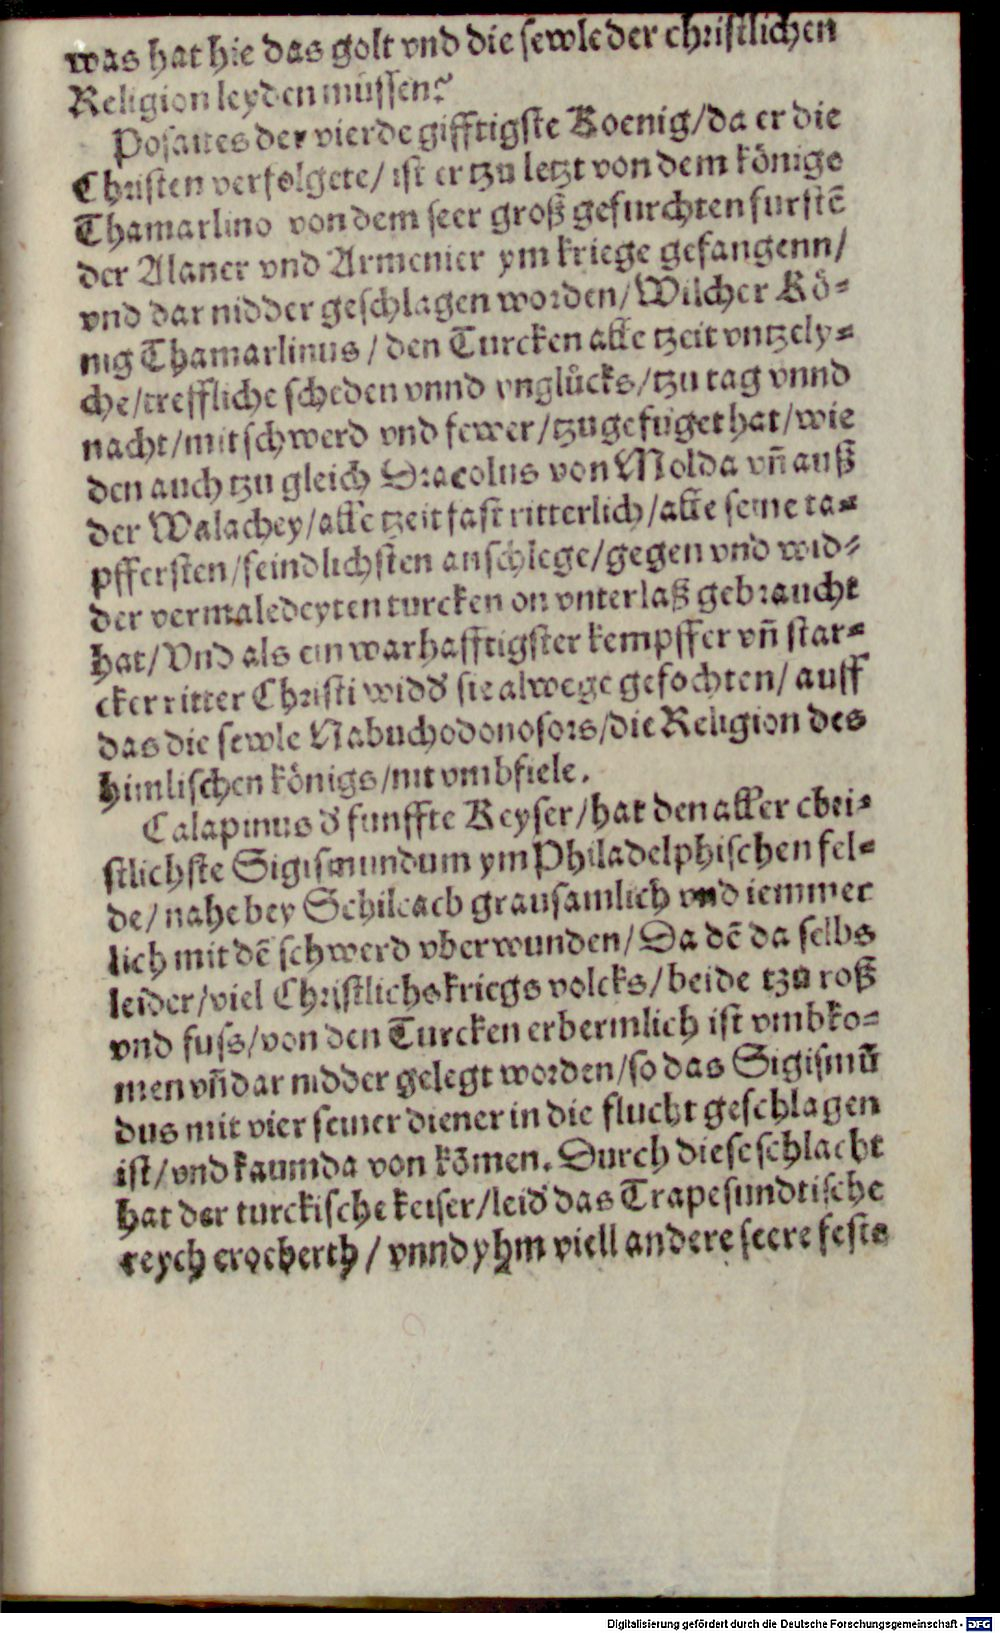 was hat hie das golt vnd die sewle der christlichen
Religion leyden müssen?
Posaites der vierde gifftigste Koenig/da er die
Christen verfolgete/ ist er tzu letzt von dem könige
Thamarlino von dem seer groß gefurchten furstē
der Alaner vnd Armenier ym kriege gefangenn/
vnd dar nidder geschlagen worden/Wilcher Kö⸗
nig Thamarlinus / den Turcken alle tzeit vntzely⸗
che/treffliche scheden vnnd vnglücks/tzu tag vnnd
nacht/mit schwerd vnd fewer/tzugefüget hat/wie
den auch tzu gleich Dracolus von Molda vn̄ auß
der Walachey/alle tzeit fast ritterlich/alle seine ta⸗
pffersten/feindlichsten anschlege/gegen vnd wid⸗
der vermaledeyten turcken on vnterlaß gebraucht
hat/Vnd als ein warhafftigster kempffer vn̄ star⸗
cker ritter Christi widd̕ sie alwege gefochten/ auff
das die sewle Nabuchodonosors/die Religion des
himlischen königs/nit vmbfiele.
Calapinus d̕ funffte Keyser/hat den aller chri⸗
stlichste Sigismundum ym Philadelphischen fel⸗
de/nahe bey Schilcach grausamlich vnd iemmer
lich mit dē schwerd vberwunden/Da dē da selbs
leider/viel Christlichs kriegs volcks/beide tzu roß
vnd fuss/von den Turcken erbermlich ist vmbko⸗
men vn̄ dar nidder gelegt worden/so das Sigismū
dus mit vier seiner diener in die flucht geschlagen
ist/vnd kaum da von kōmen. Durch diese schlacht
hat der turckische keiser/leid̕ das Trapesundtische
reych eroberth / vnnd yhm viell andere seere feste
Digitalisierung gefördert durch die Deutsche Forschungsgemeinschaft - DFG